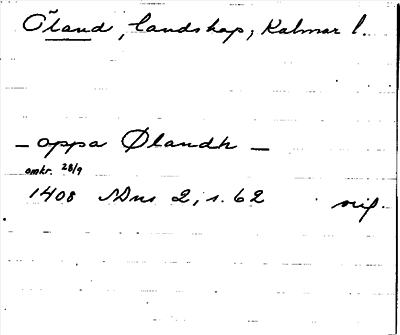 Öland, landskap, Kalmar l.
– oppa Ølandh –
omkr. 28/9
1408 SDns 2, s. 62 orig.